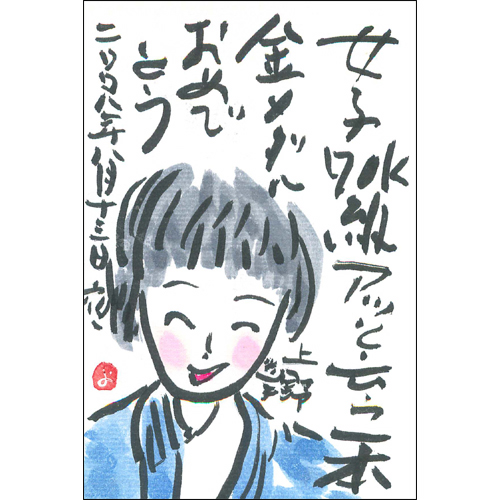 女子70K級アッと云う一本
金メダル
おめで
とう
二〇〇八年八月十三日夜
上野
雅恵